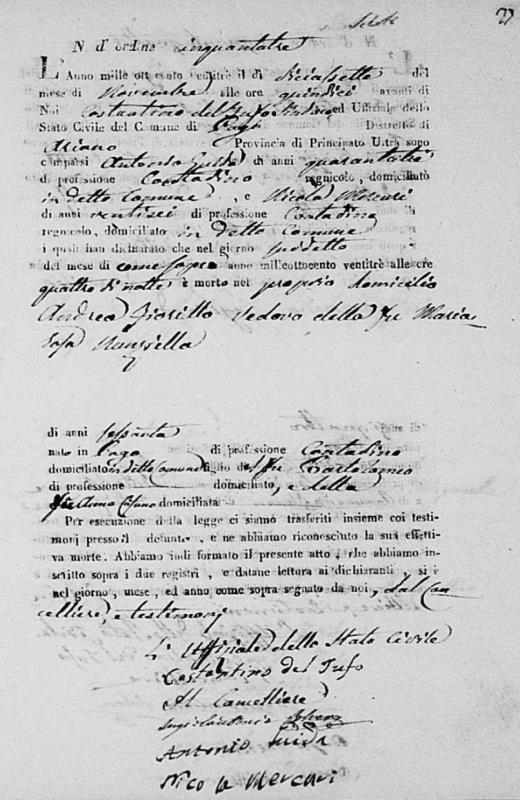 27
N d'ordine cinquantatre
L'Anno mille ottocento ventitrè il dì diciassette del
mese di Novembre alle ore quindici avanti di
Noi Costantino del Tufo Sindaco ed Uffiziale dello
Stato Civile del Comune di Pago Distretto di
Ariano Provincia di Principato Ultra sono
comparsi Antonio Guida di anni quarantatré
di professione Contadino regnicolo, domiciliato
in detto Comune, e Nicola Mercuri
di anni ventisei di professione Contadino
regnicolo, domiciliato in detto Comune
i quali han dichiarato che nel giorno suddetto
del mese di come sopra anno mill'ottocento ventitrè alle ore
quattro di notte è morto nel proprio domicilio
Andrea Fioritto vedovo della fu Maria
Rosa
di anni sessanta
nato in Pago di professione Contadino
domiciliato in detto Comune figlio del fu Bartolomeo
di professione domiciliato, e della
fu Anna domiciliata
Per esecuzione della legge ci siamo trasferiti insieme coi testi-
monj presso il defunto, e ne abbiamo riconosciuto la sua effetti-
va morte. Abbiamo indi formato il presente atto, che abbiamo in-
scritto sopra i due registri, e datane lettura ai dichiaranti, si è
nel giorno, mese, ed anno come sopra segnato da noi, dal Can
celliere, e testimonj
L'Uffiziale dello Stato Civile
Costantino del Tufo
Il Cancelliere
Antonio Guida
Nicola Mercuri